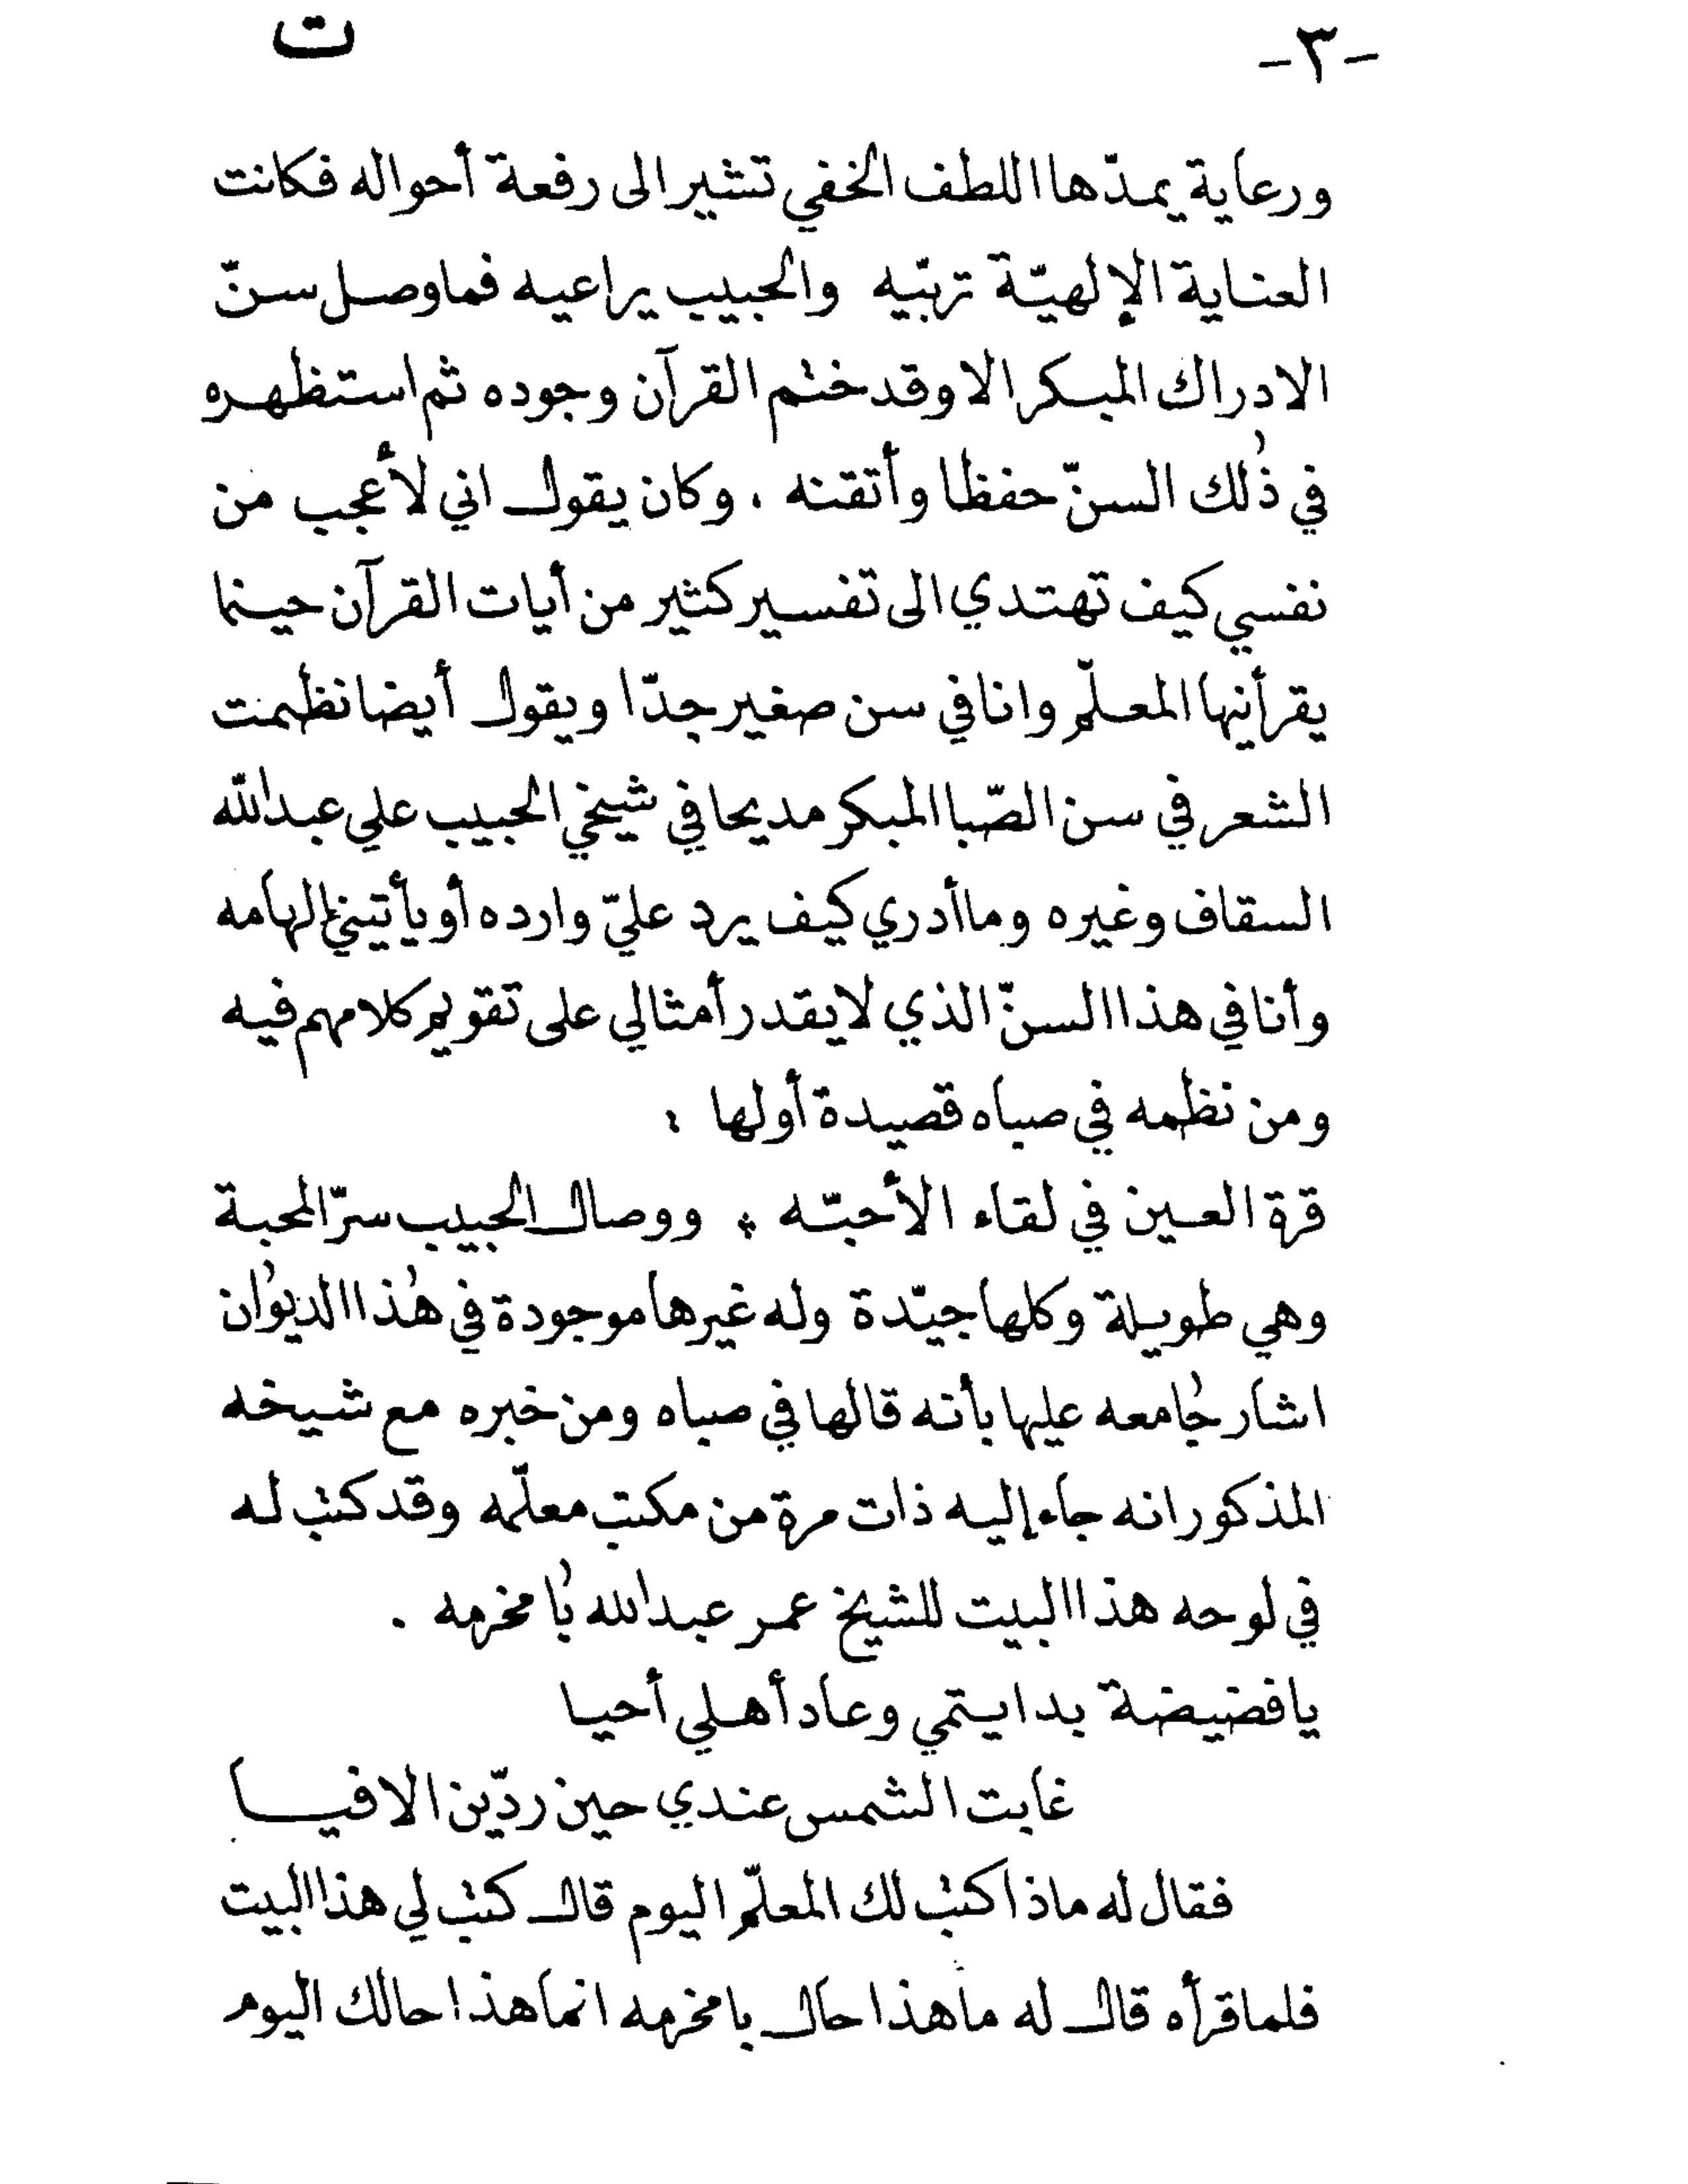 -٣- ت
ورعاية يمدّها اللطف الخفي تشير الى رفعة أحواله فكانت
العناية الإلهيّة تربّيه والحبيب يراعيه فما وصل سنّ
الادراك المبكر الا وقد ختم القرآن وجوده ثم استظهره
في ذٰلك السنّ حفظا وأتقنه . وكان يقول اني لأعجب من
نفسي كيف تهتدي الى تفسير كثير من أيات القرآن حينما
يقرأنيها المعلّم وانا في سن صغير جدّا ويقول أيضا نظمت
الشعر في سن الصّبا المبكر مديحا في شيخي الحبيب علي عبدالله
السقاف وغيره وما أدري كيف يرد عليّ وارده أو يأتيني إلهامه
وأنا في هذا السنّ الذي لا يقدر أمثالي على تقويم كلامهم فيه
ومن نظمه في صباه قصيدة أولها :
قرة العين في لقاء الأحبّه * ووصال الحبيب سرّ المحبة
وهي طويلة وكلها جيّدة وله غيرها موجودة في هٰذا الديوٰان
اشار جٰامعه عليها بأنه قالها في صباه ومن خبره مع شيخه
المذكور انه جاء إليه ذات مرة من مكتب معلّمه وقد كتب له
في لوحه هذا البيت للشيخ عمر عبدالله بٰا مخرمه .
يا فضيضة بدا يتمي وعاد أهلي أحيا
غابت الشمس عندي حين ردّين الافيا
فقال له ماذا كتب لك المعلّم اليوم قال كتب لي هذا البيت
فلما قرأه قال له ما هذا حال با مخرمه انما هذا حالك اليوم